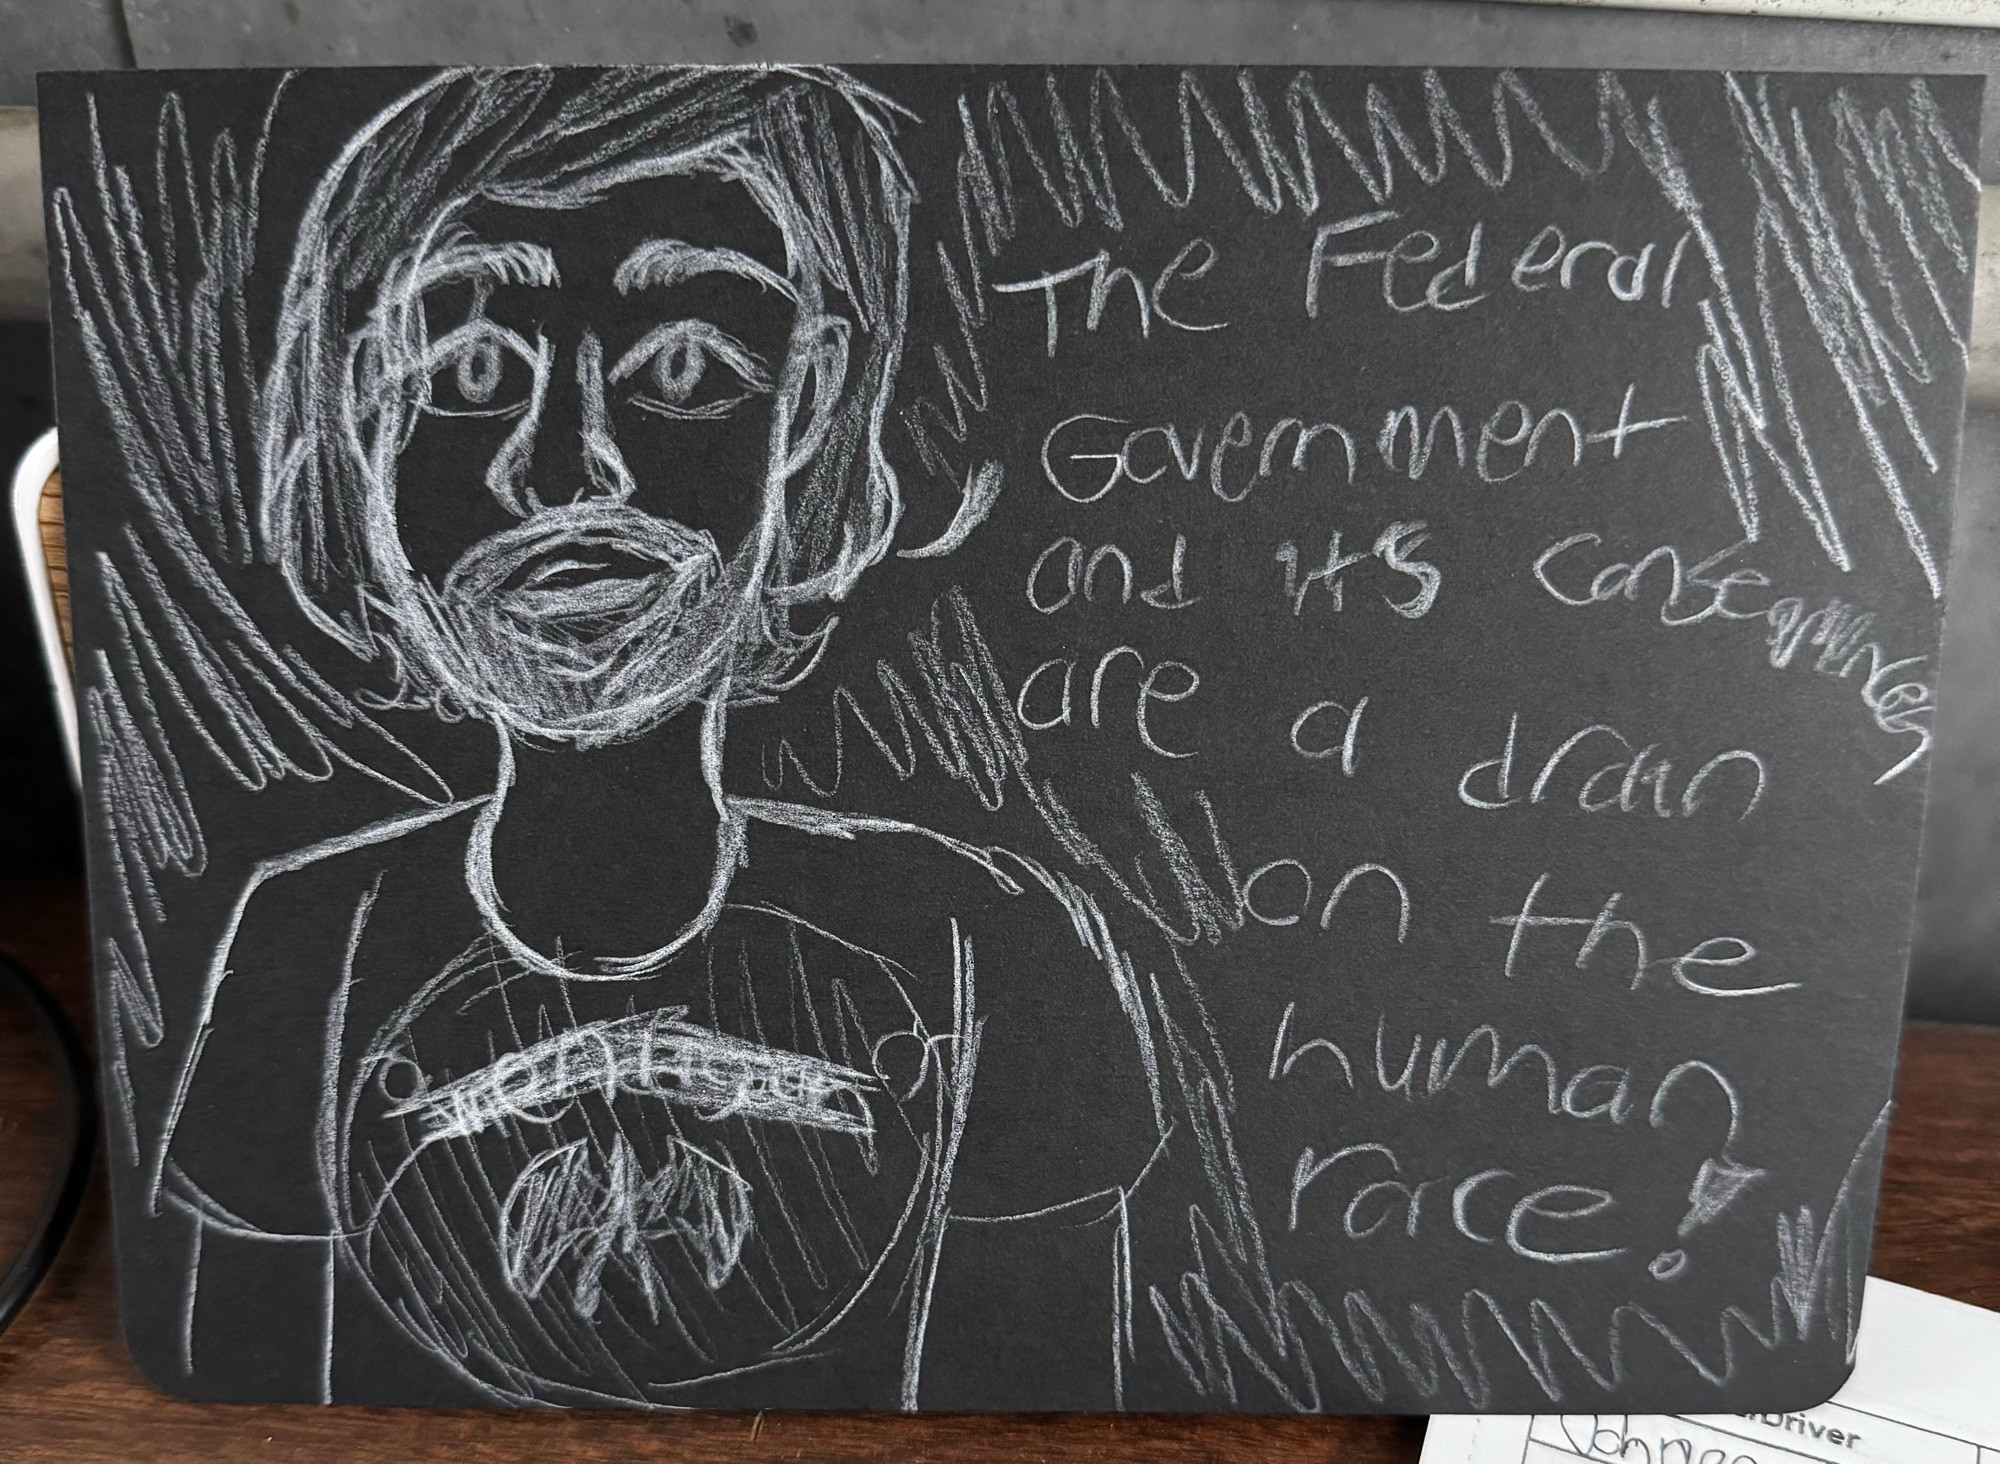 The Federal
Government
and its consequences
are a drain
on the
human
race!
Driver